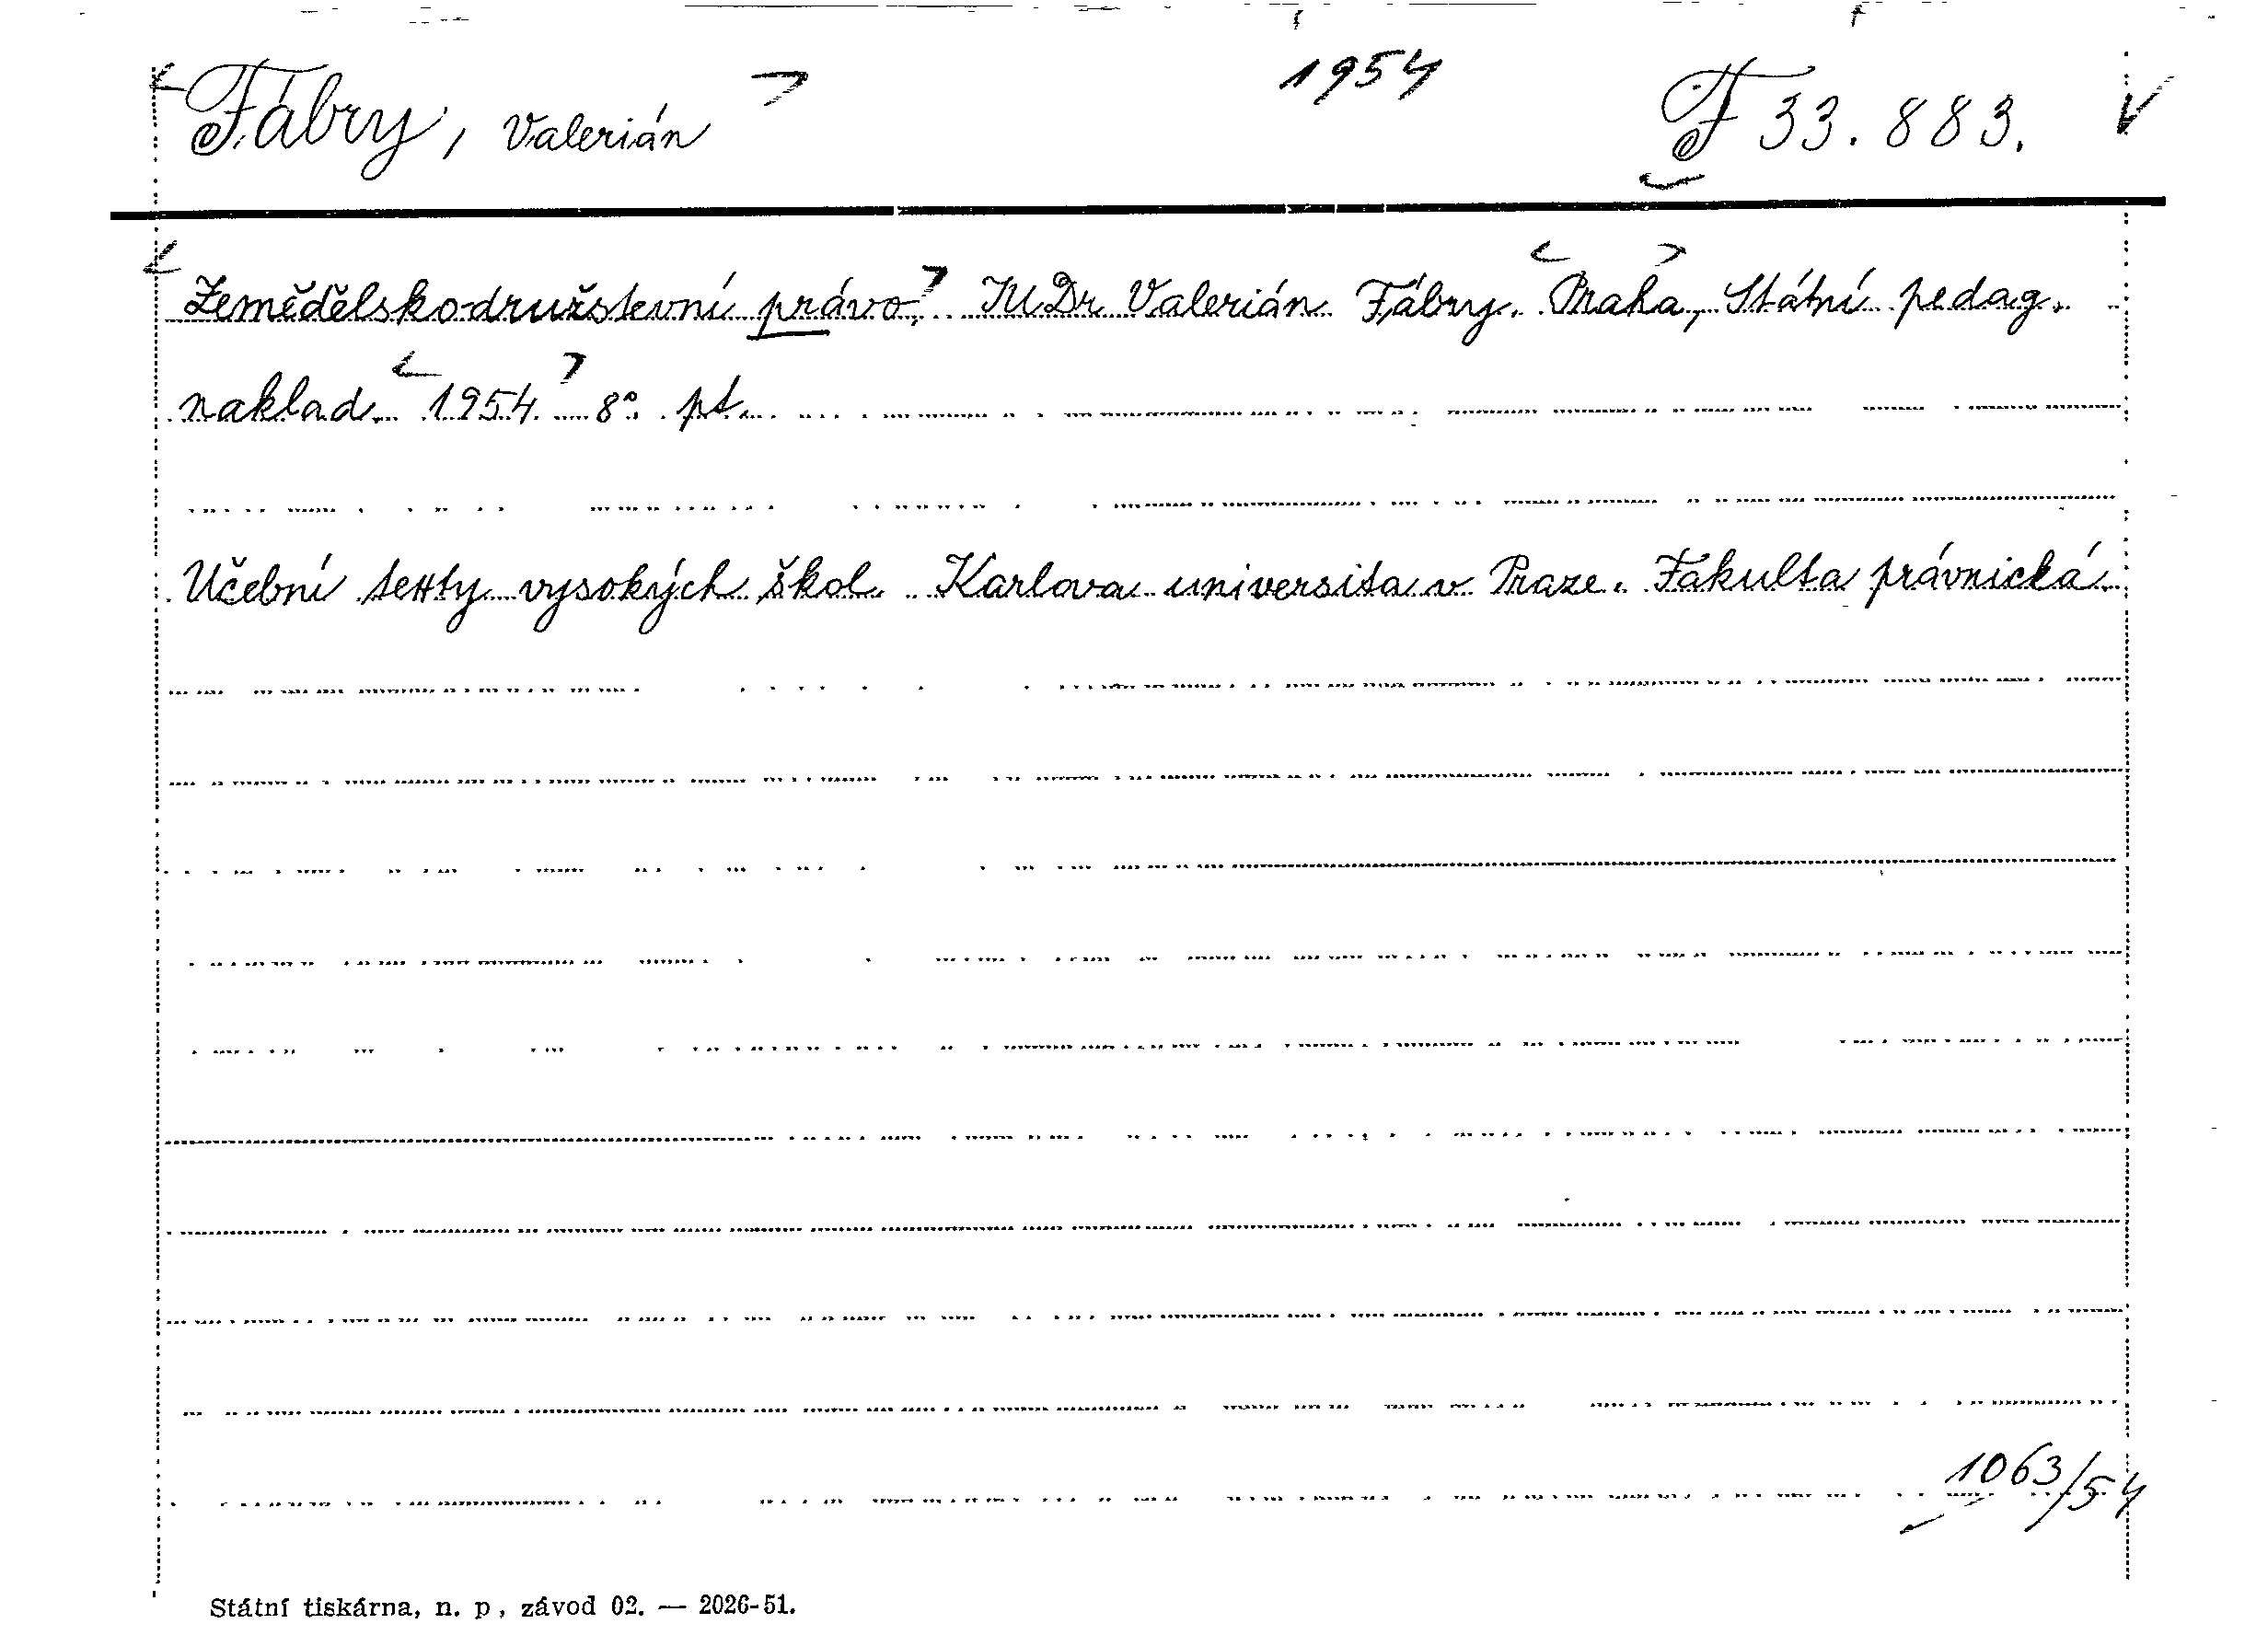 Fábry, Valerián 1954 F 33.883.
Zemědělsko-družstevní právo. JUDr Valerián Fábry. Praha, Státní pedag.
naklad. 1954. 8°. pt.
Učební texty vysokých škol. Karlova universita v Praze. Fakulta právnická.
1063/54
Státní tiskárna, n. p., závod 02. — 2026-51.